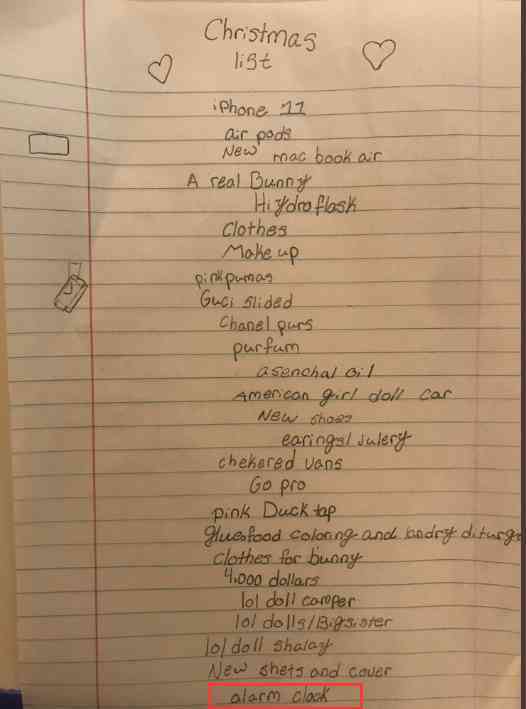 Christmas
list
iPhone 11
air pods
New mac book air
A real Bunny
Hydroflask
Clothes
Make up
pink pumas
Guci slided
Chanel purs
purfum
asenchal oil
American girl doll car
New shoes
earings/julery
chekered vans
Go pro
pink Duck tap
glue food coloring and londry diturge
Clothes for bunny
4,000 dollars
lol doll camper
lol dolls/Bigsister
lol doll shalay
New shets and cover
alarm clock